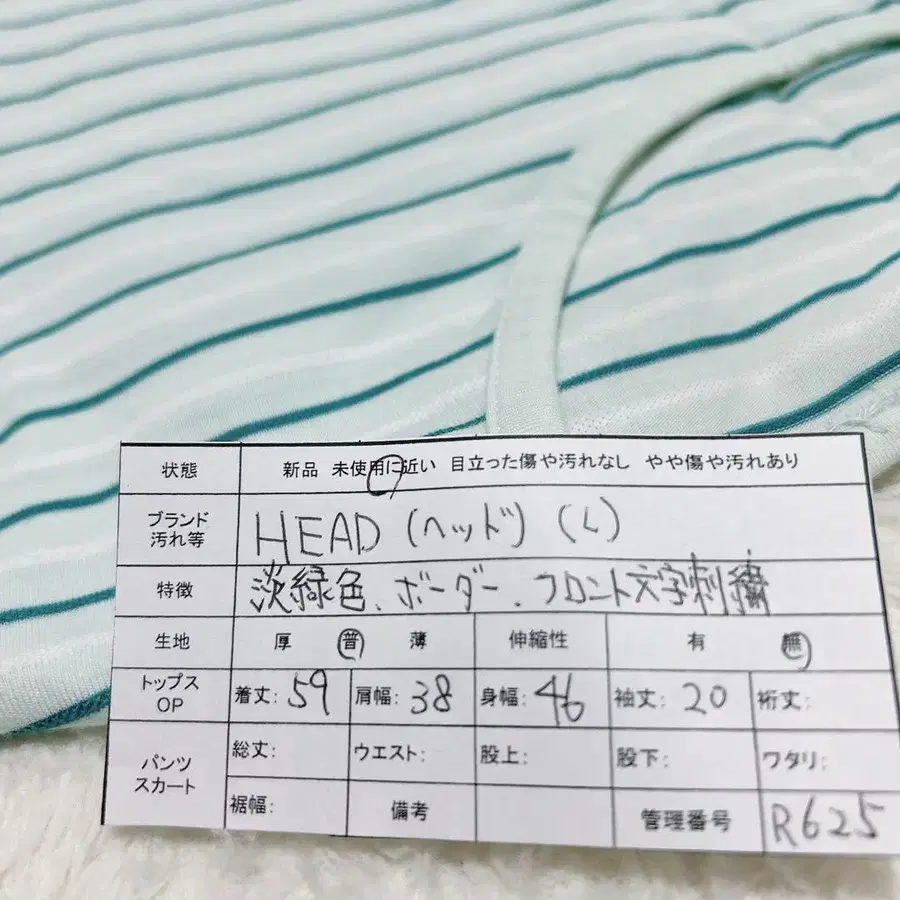 状態 新品 未使用に近い 目立った傷や汚れなし やや傷や汚れあり
ブランド
汚れ等
HEAD (ヘッド) (L)
特徴 淡緑色、ボーダー、フロント文字刺繍
生地 厚 普 薄 伸縮性 有 無
トップス
OP
着丈: 59 肩幅: 38 身幅: 46 袖丈: 20 裄丈:
パンツ
スカート
総丈: ウエスト: 股上: 股下: ワタリ:
裾幅: 備考 管理番号 R625